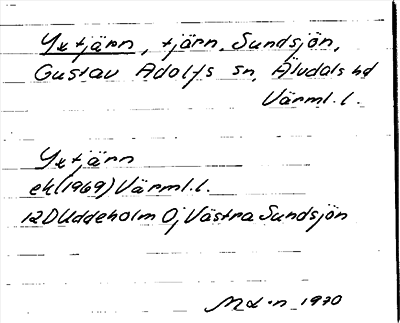 Yxtjärn, tjärn, Sundsjön,
Gustav Adolfs sn, Älvdals hd
Värml. l.
Yxtjärn
ek(1969) Värml. l.
12D Uddeholm Oj Västra Sundsjön
1970